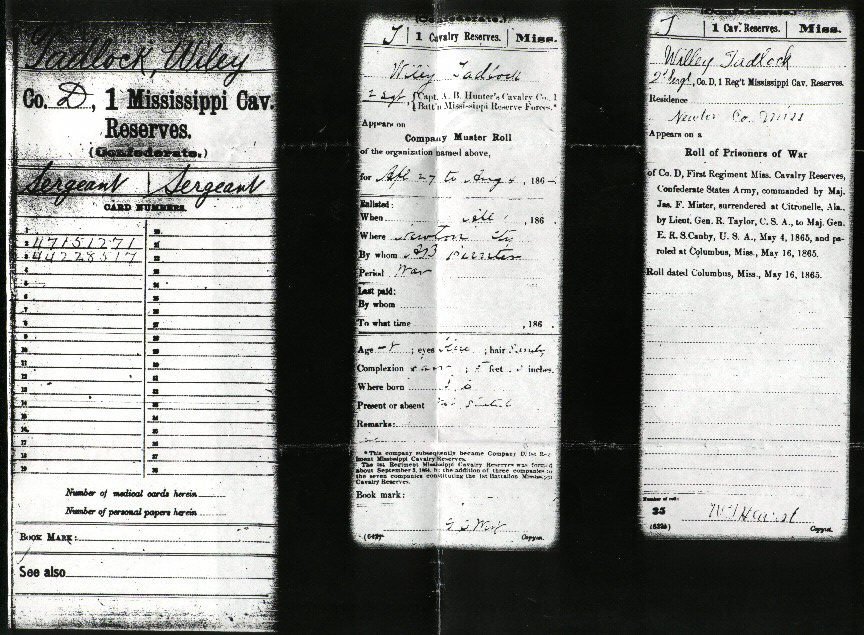 Tadlock, Wiley
Co. D, 1 Mississippi Cav.
Reserves.
(Confederate.)
Sergeant | Sergeant
CARD NUMBERS.
1
2 47151271
3 44228517
4
5
6
7
8
9
10
11
12
13
14
15
16
17
18
19
20
21
22
23
24
25
26
27
28
29
30
31
32
33
34
35
36
37
38
Number of medical cards herein
Number of personal papers herein
BOOK MARK:
See also
(Confederate.)
T | 1 Cavalry Reserves. | Miss.
Wiley Tadlock
2 Sgt, {Capt. A. B. Hunter's Cavalry Co., 1
Batt'n Mississippi Reserve Forces.*
Appears on
Company Muster Roll
of the organization named above,
for Apl 27 to Aug , 186
Enlisted:
When , 186 .
Where Newton
By whom
Period War
Last paid:
By whom
To what time , 186 .
Age ; eyes ; hair Sandy
Complexion ; feet inches.
Where born
Present or absent
Remarks:
* This company subsequently became Company D, 1st Regiment
Mississippi Cavalry Reserves.
The 1st Regiment Mississippi Cavalry Reserves was formed
about September 3, 1864, by the addition of three companies to
the seven companies constituting the 1st Battalion Mississippi
Cavalry Reserves.
Book mark:
Copyist.
(Confederate.)
T | 1 Cav. Reserves. | Miss.
Willey Tadlock
2d Sergt, Co. D, 1 Reg't Mississippi Cav. Reserves.
Residence
Newton Co. Miss
Appears on a
Roll of Prisoners of War
of Co. D, First Regiment Miss. Cavalry Reserves,
Confederate States Army, commanded by Maj.
Jas. F. Mister, surrendered at Citronelle, Ala.,
by Lieut. Gen. R. Taylor, C. S. A., to Maj. Gen.
E. R. S. Canby, U. S. A., May 4, 1865, and pa-
roled at Columbus, Miss., May 16, 1865.
Roll dated Columbus, Miss., May 16, 1865.
Number of roll:
35
Copyist.